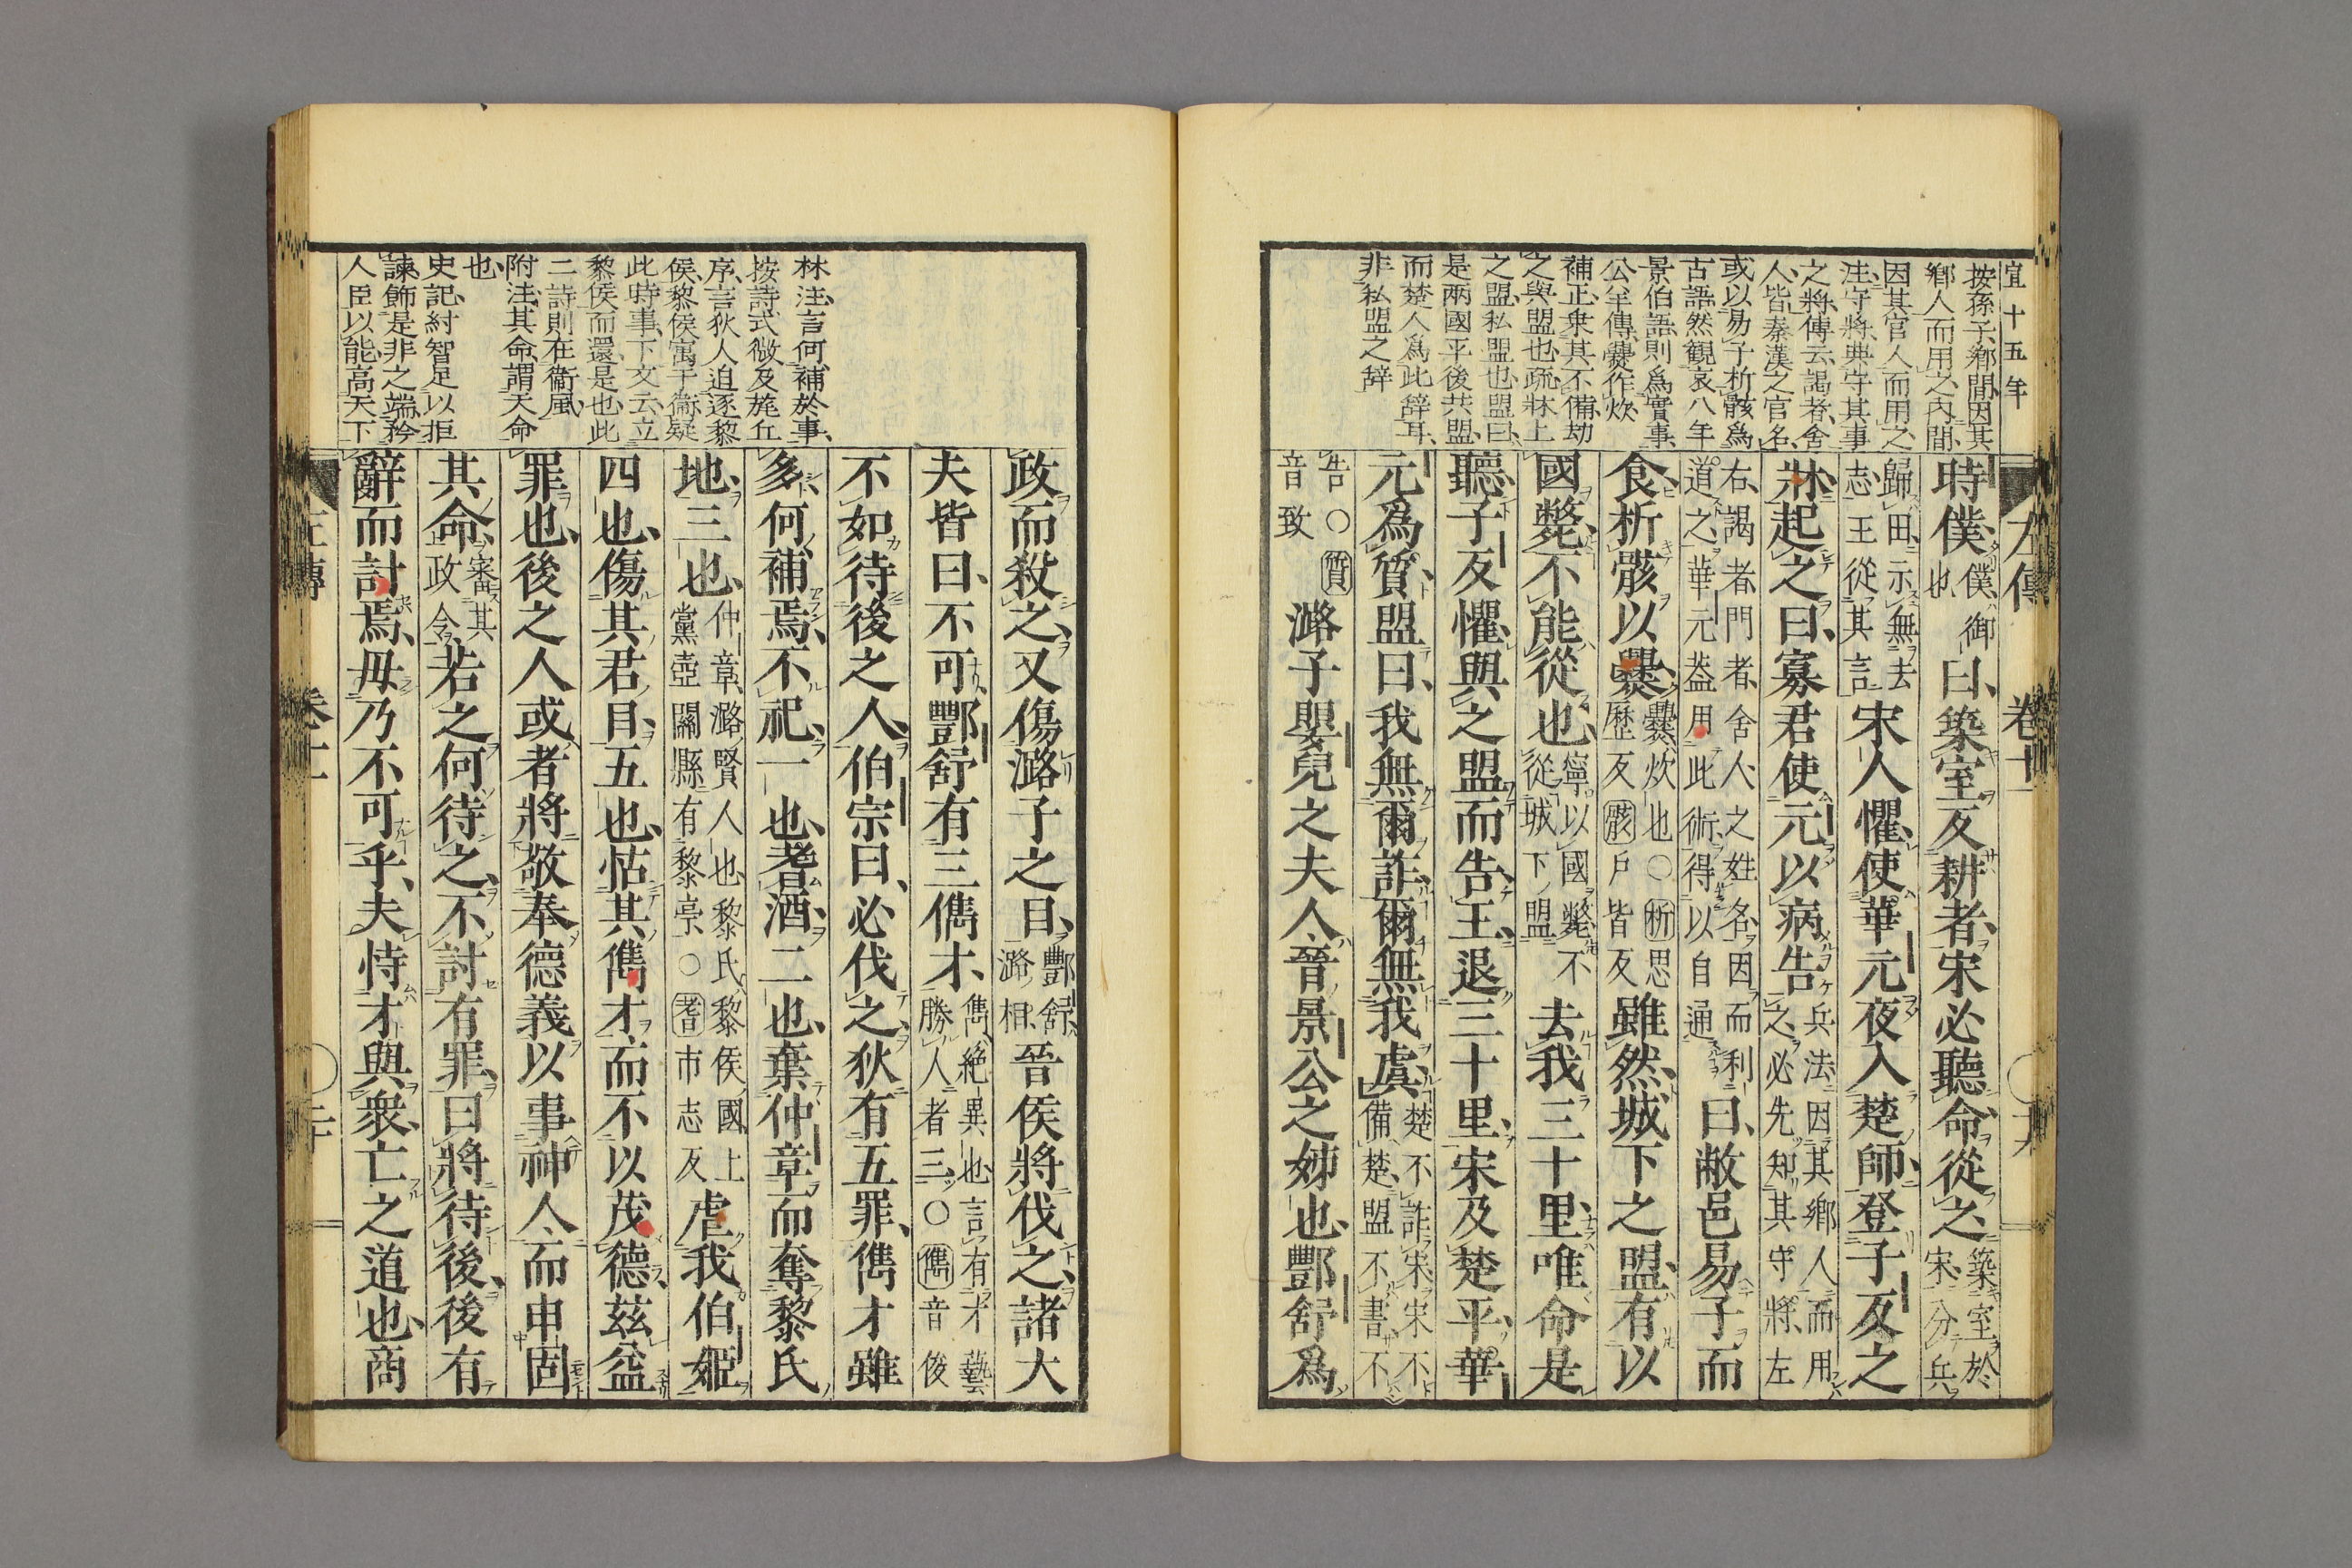 宣十五年
左傳
卷十一
按孫子鄕間因其
鄕人而用之内間
因其官人而用之
注守將典守其事
之將傳云謁者舍
人皆秦漢之官名
或以易子析骸爲
古語然觀哀八年
景伯語則爲實事
公羊傳爨作炊
補正衆其不備劫
之與盟也疏牀上
之盟私盟也盟曰
是兩國平後共盟
而楚人爲此辭耳
非私盟之辭
時僕僕御也曰築室反耕者宋必聽命從之築室於宋分兵
歸田示無去志王從其言宋人懼使華元夜入楚師登子反之
牀起之曰寡君使元以病告兵法因其鄕人而用之必先知其守將左
右謁者門者舍人之姓名因而利道之華元蓋用此術得以自通曰敝邑易子而
食析骸以爨爨炊也○析思歷反骸戶皆反雖然城下之盟有以
國斃不能從也寧以國斃不從城下盟去我三十里唯命是
聽子反懼與之盟而告王退三十里宋及楚平華
元爲質盟曰我無爾詐爾無我虞楚不詐宋宋不備楚盟不書不
告○質音致潞子嬰兒之夫人晉景公之姊也酆舒爲
林注言何補於事
按詩式微及旄丘
序言狄人迫逐黎
侯黎侯寓于衞疑
此時事下文云立
黎侯而還是也此
二詩則在衞風
附注其命謂天命
也
史記紂智足以拒
諫飾是非之端矜
人臣以能高天下
政而殺之又傷潞子之目酆舒潞相晉侯將伐之諸大
夫皆曰不可酆舒有三儁才儁絕異也言有才藝勝人者三○儁音俊
不如待後之人伯宗曰必伐之狄有五罪儁才雖
多何補焉不祀一也耆酒二也棄仲章而奪黎氏
地三也仲章潞賢人也黎氏黎侯國上黨壺關縣有黎亭○耆市志反虐我伯姬
四也傷其君目五也怙其儁才而不以茂德茲益
罪也後之人或者將敬奉德義以事神人而申固
其命審其政令若之何待之不討有罪曰將待後後有
辭而討焉毋乃不可乎夫恃才與衆亡之道也商